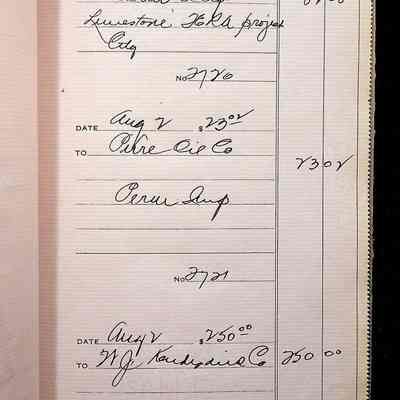 Limestone FERA project
No. 2720
DATE Aug 2 $ 23 02
TO Pure Oil Co
23 02
Perm Imp
No. 2721
DATE Aug 2 $ 250 00
TO W J Co 250 00